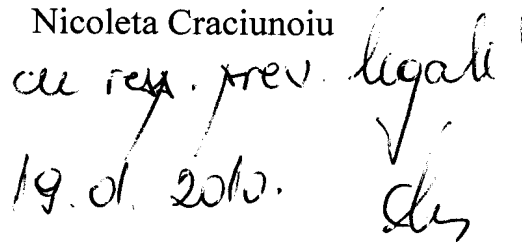 Nicoleta Craciunoiu
cu resp. prev. legale
19.01. 2010.